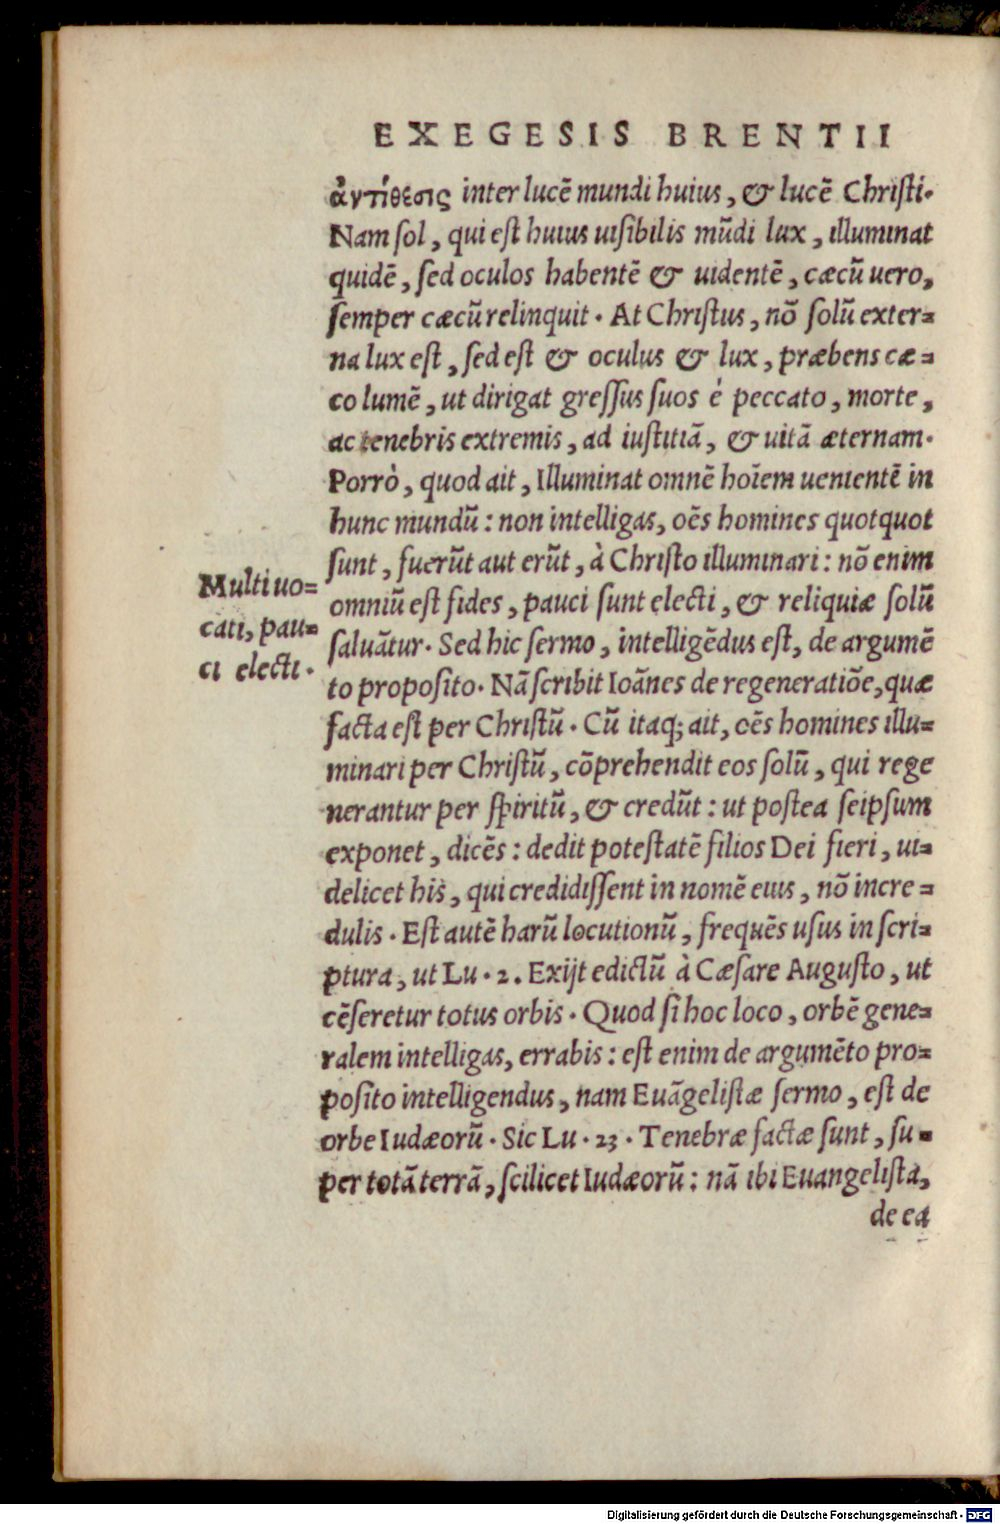 EXEGESIS BRENTII
ἀντίθεσις inter lucē mundi huius, & lucē Christi.
Nam sol, qui est huius uisibilis mūdi lux, illuminat
quidē, sed oculos habentē & uidentē, cæcū uero,
semper cæcū relinquit. At Christus, nō solū exter=
na lux est, sed est & oculus & lux, præbens cæ=
co lumē, ut dirigat gressus suos è peccato, morte,
ac tenebris extremis, ad iustitiā, & uitā æternam.
Porrò, quod ait, Illuminat omnē hoīem uenientē in
hunc mundū: non intelligas, oēs homines quotquot
sunt, fuerūt aut erūt, à Christo illuminari: nō enim
omniū est fides, pauci sunt electi, & reliquiæ solū
saluātur. Sed hic sermo, intelligēdus est, de argumē
to proposito. Nā scribit Ioānes de regeneratiōe, quæ
facta est per Christū. Cū itaq; ait, oēs homines illu=
minari per Christū, cōprehendit eos solū, qui rege
nerantur per spiritū, & credūt: ut postea seipsum
exponet, dicēs: dedit potestatē filios Dei fieri, ui=
delicet his, qui credidissent in nomē eius, nō incre=
dulis. Est autē harū locutionū, frequēs usus in scri=
ptura, ut Lu. 2. Exijt edictū à Cæsare Augusto, ut
cēseretur totus orbis. Quod si hoc loco, orbē gene=
ralem intelligas, errabis: est enim de argumēto pro=
posito intelligendus, nam Euāgelistæ sermo, est de
orbe Iudæorū. Sic Lu. 23. Tenebræ factæ sunt, su=
per totā terrā, scilicet Iudæorū: nā ibi Euangelista,
de ea
Multi uo=
cati, pau=
ci electi.
Digitalisierung gefördert durch die Deutsche Forschungsgemeinschaft - DFG